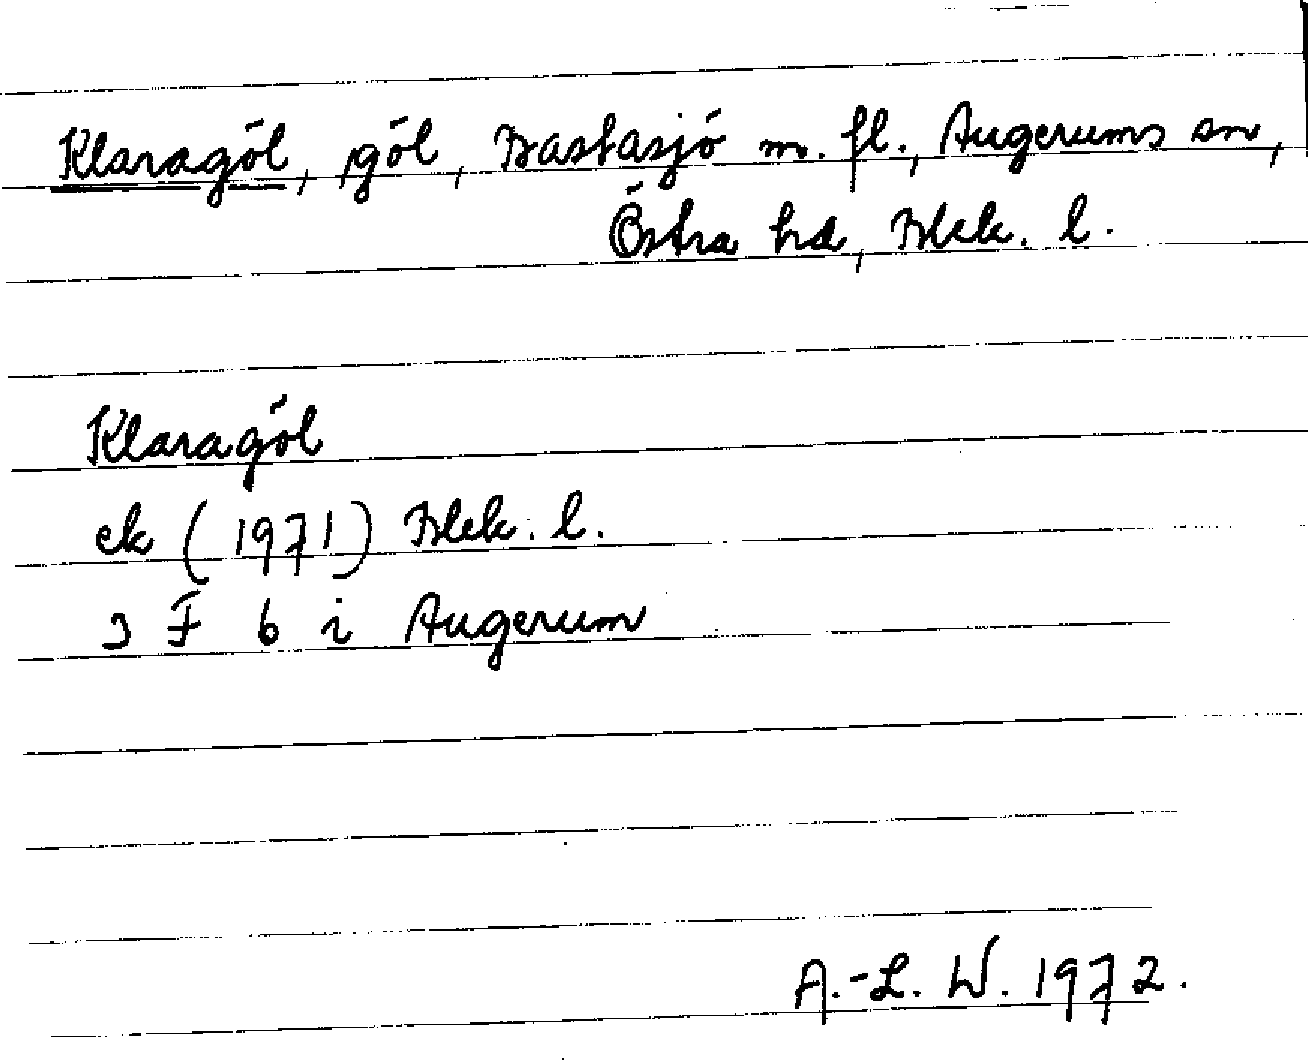 Klaragöl, göl, Bastasjö m. fl., Augerums sn,
Östra hd, Blek. l.
Klaragöl
ek (1971) Blek. l.
3 F 6 i Augerum
A.-L. W. 1972.